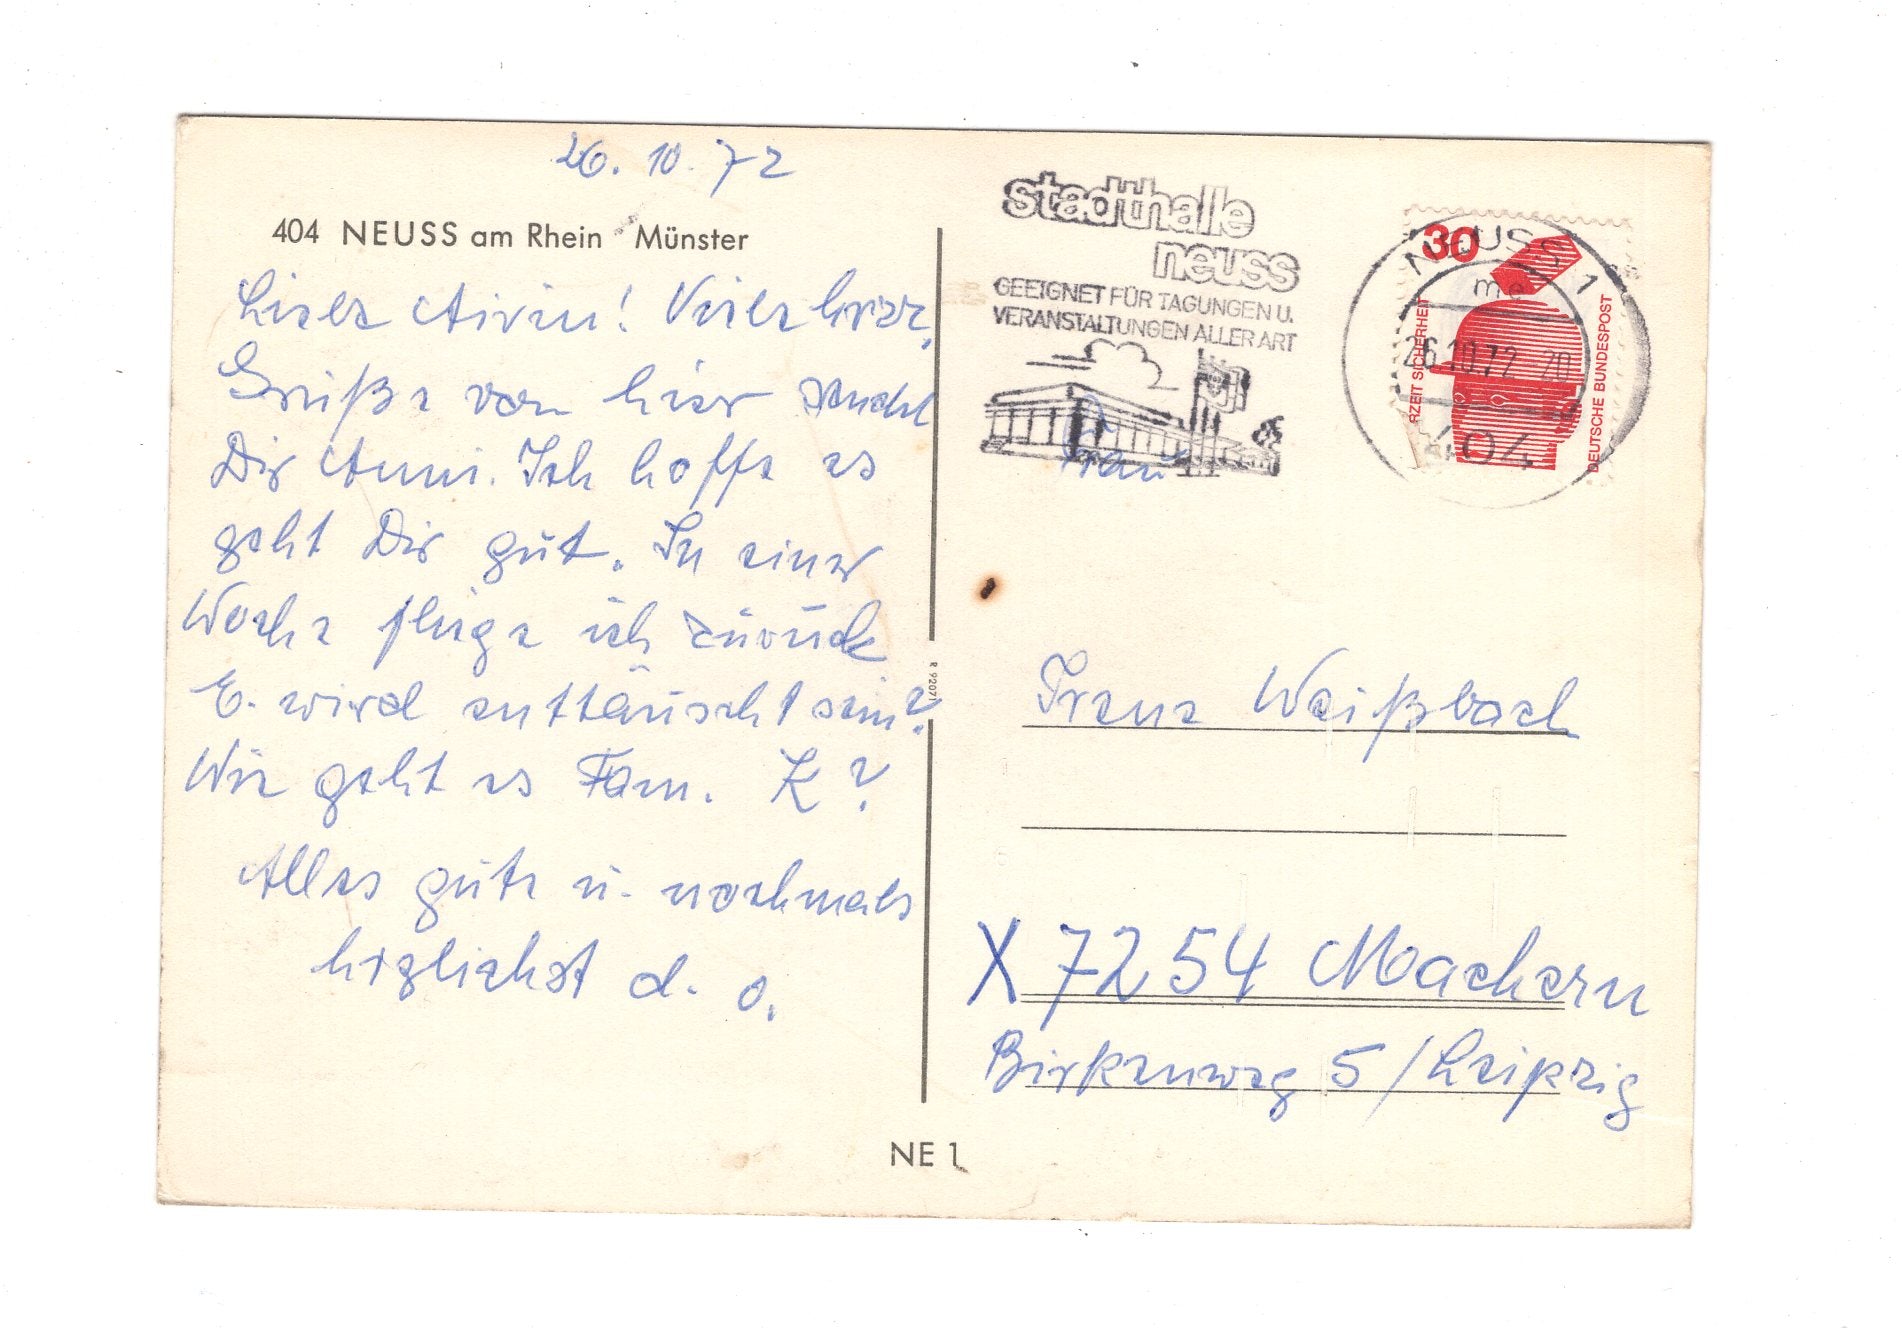 26. 10. 72
404 NEUSS am Rhein Münster
Liebe Viele herz.
Grüße von hier sendet
Dir Anni. Ich hoffe es
geht Dir gut. In einer
Woche fliege ich zurück
E. wird enttäuscht sein?
Wie geht es Fam. K?
Alles gute u. nochmals
herzlichst d. o.
R 92071
stadthalle
neuss
GEEIGNET FÜR TAGUNGEN U.
VERANSTALTUNGEN ALLER ART
30
JEDERZEIT SICHERHEIT
DEUTSCHE BUNDESPOST
NEUSS 1
me
26.10.72-20
404
Frau
Weißbach
X 7254 Machern
Birkenweg 5 / Leipzig
NE 1